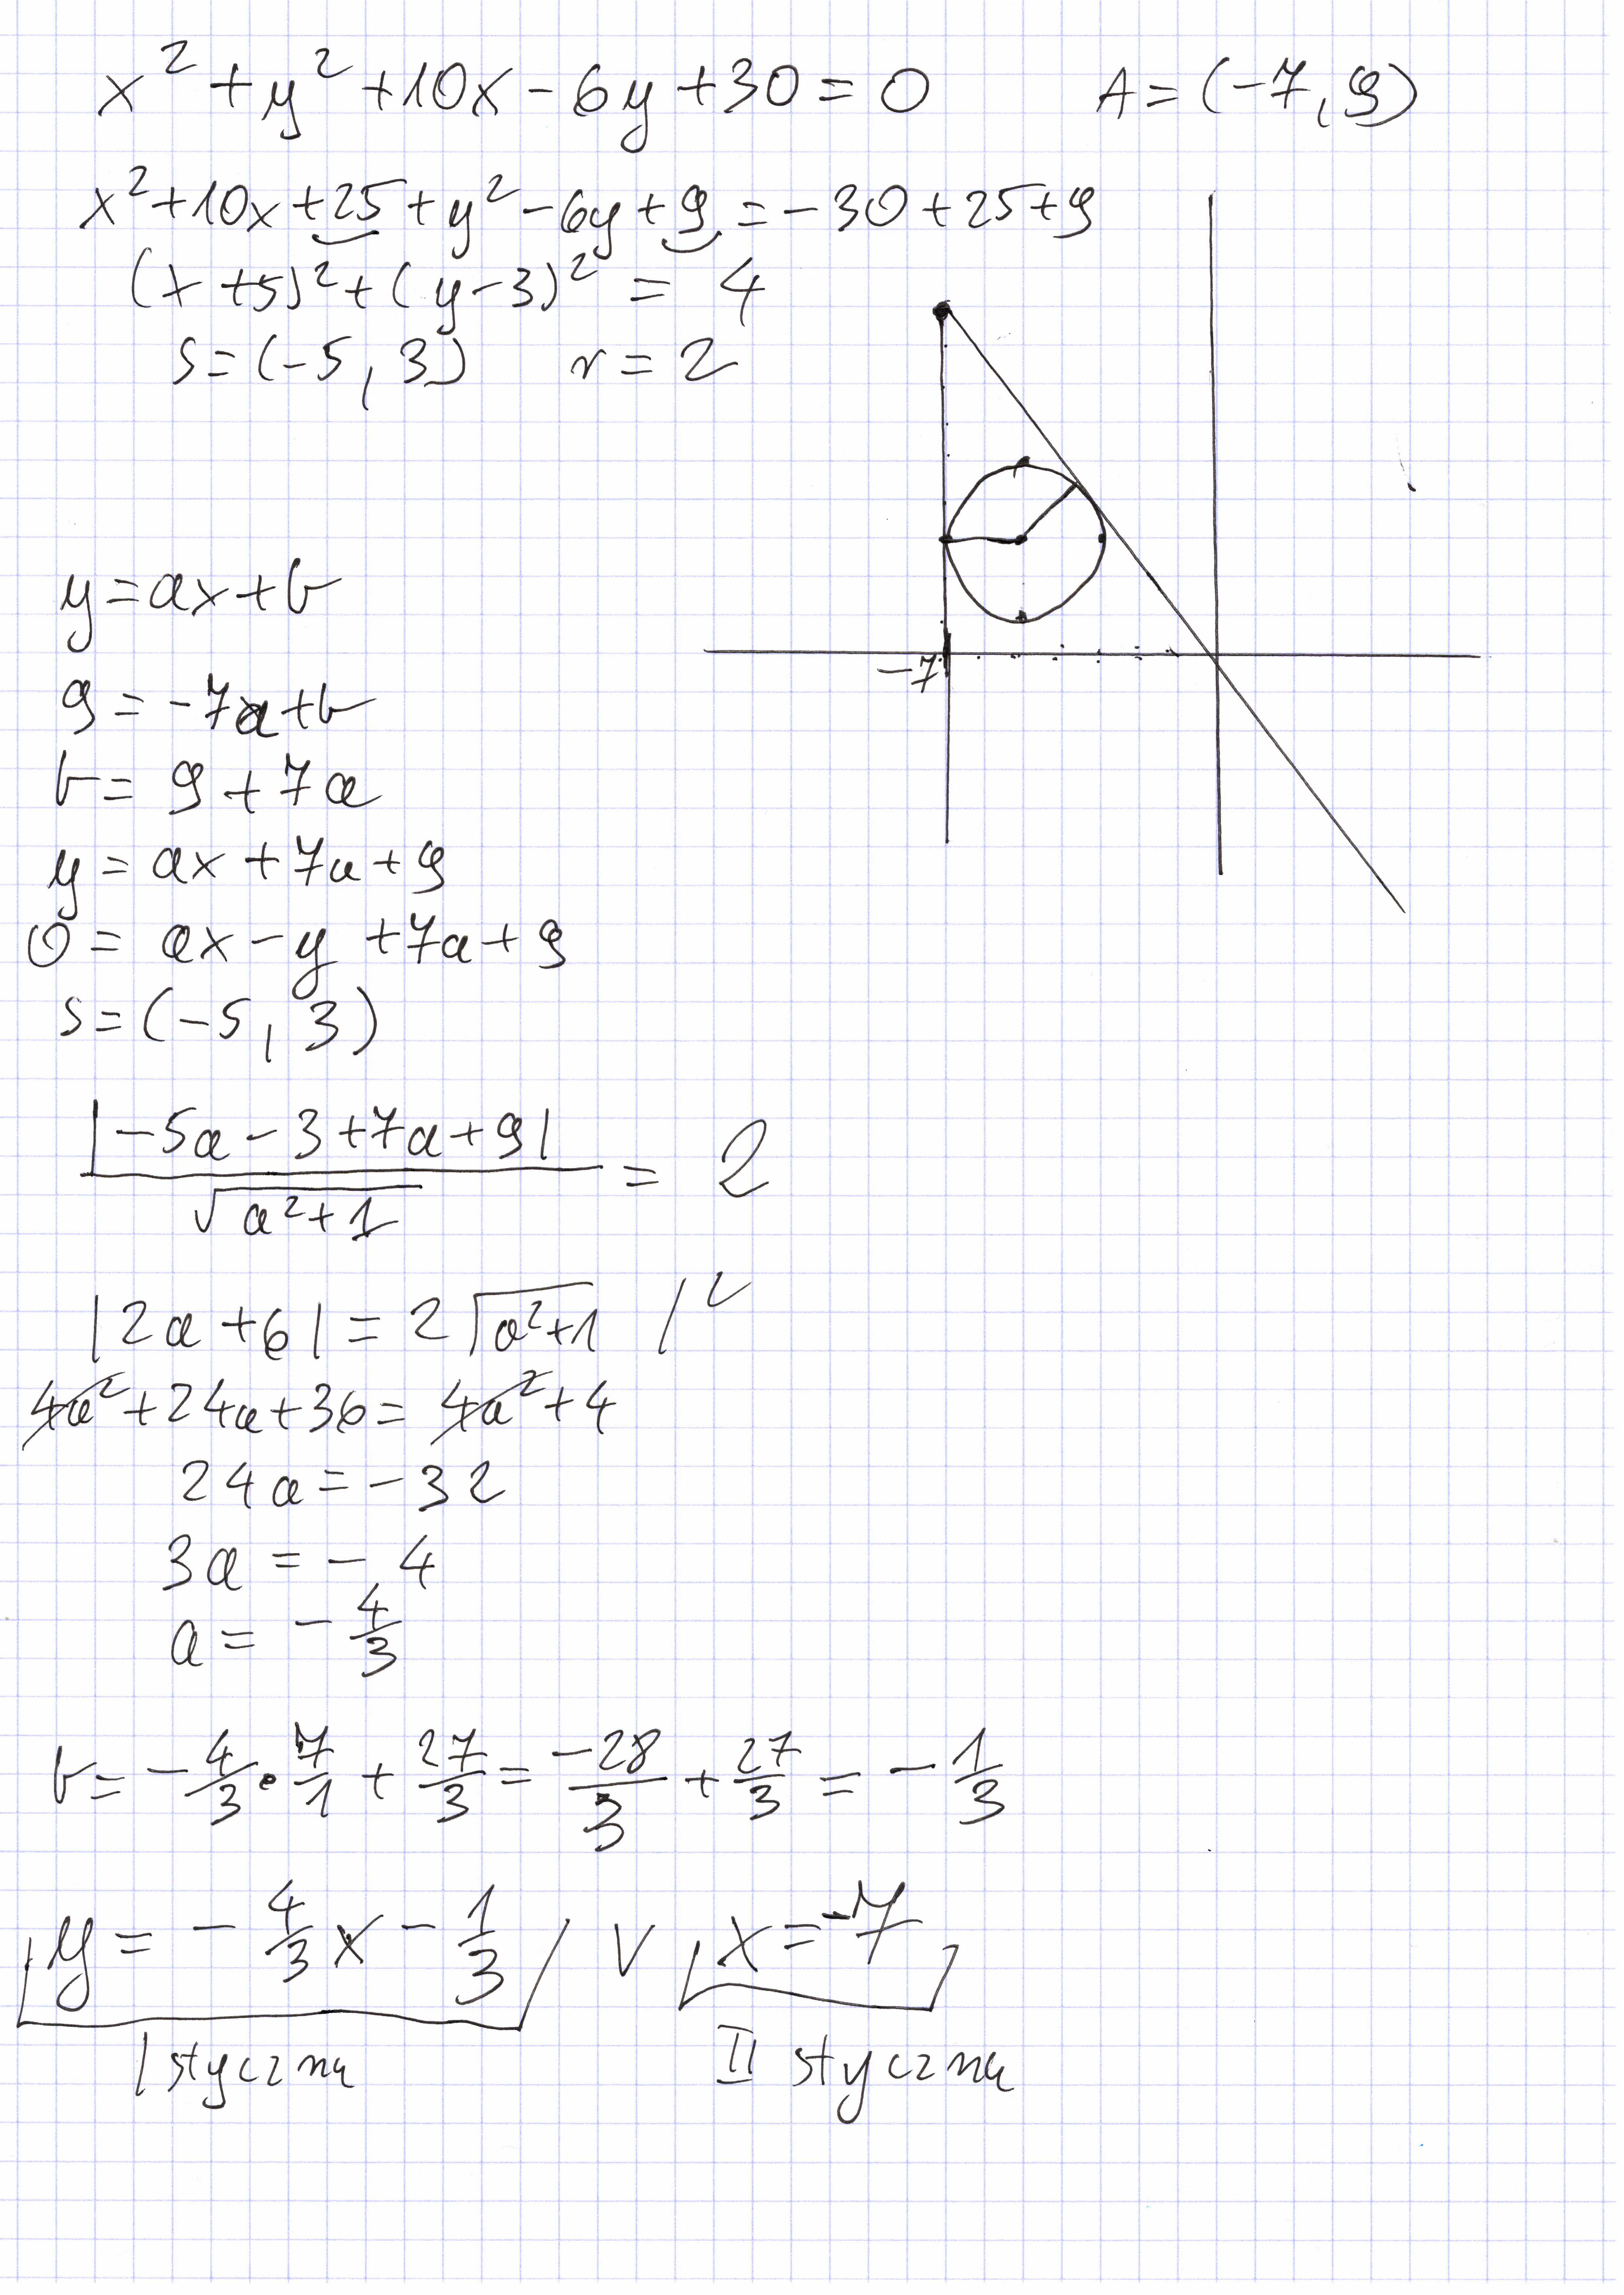 x² + y² + 10x - 6y + 30 = 0 A = (-7, 9)
x² + 10x + 25 + y² - 6y + 9 = -30 + 25 + 9
(x + 5)² + (y - 3)² = 4
S = (-5, 3) r = 2
-7
y = ax + b
9 = -7a + b
b = 9 + 7a
y = ax + 7a + 9
0 = ax - y + 7a + 9
S = (-5, 3)
|-5a - 3 + 7a + 9| / √(a² + 1) = 2
|2a + 6| = 2√(a² + 1) /²
4a² + 24a + 36 = 4a² + 4
24a = -32
3a = -4
a = -4/3
b = -4/3 · 7/1 + 27/3 = -28/3 + 27/3 = -1/3
y = -4/3 x - 1/3 ∨ x = -7
I styczna II styczna